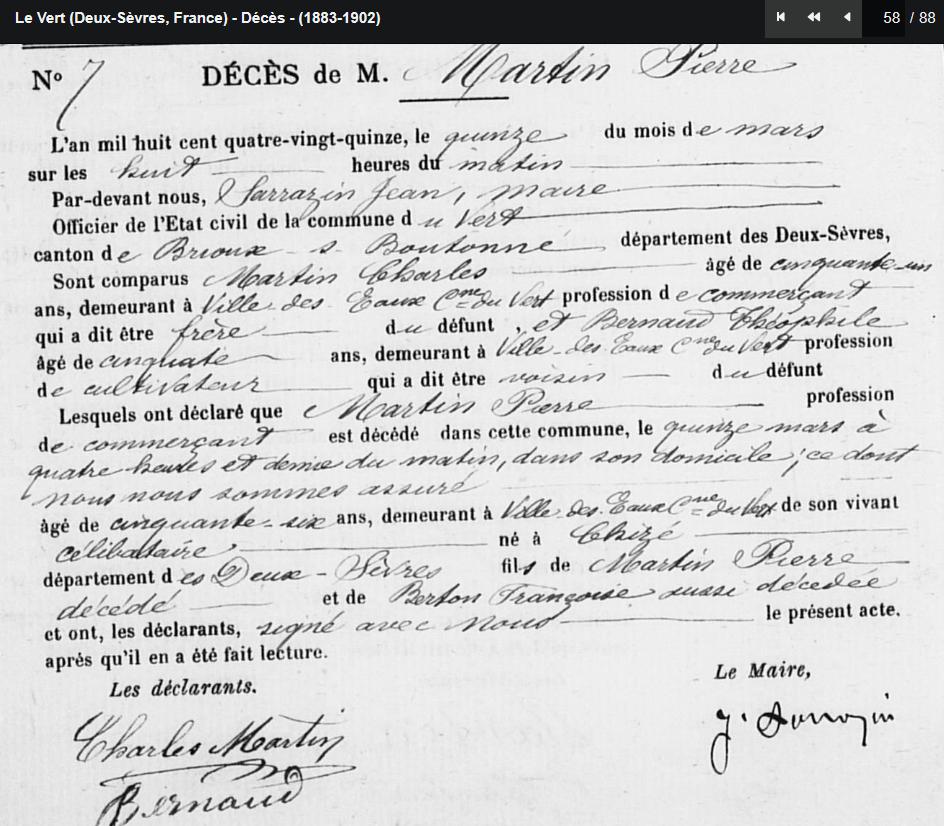 Le Vert (Deux-Sèvres, France) - Décès - (1883-1902)
58 / 88
N° 7 DÉCÈS de M. Martin Pierre
L'an mil huit cent quatre-vingt-quinze, le quinze du mois de mars
sur les huit heures du matin
Par-devant nous, Sarrazin Jean, maire
Officier de l'Etat civil de la commune du Vert
canton de Brioux - s - Boutonne département des Deux-Sèvres,
Sont comparus Martin Charles âgé de cinquante-un
ans, demeurant à Ville des Eaux Cne du Vert profession de commerçant
qui a dit être frère du défunt, et Bernaud Théophile
âgé de cinquate ans, demeurant à Ville-des-Eaux Cne du Vert profession
de cultivateur qui a dit être voisin du défunt
Lesquels ont déclaré que Martin Pierre profession
de commerçant est décédé dans cette commune, le quinze mars à
quatre heures et demie du matin, dans son domicile; ce dont
nous nous sommes assuré
âgé de cinquante-six ans, demeurant à Ville des-Eaux Cne du Vert de son vivant
célibataire né à Chizé
département des Deux-Sèvres fils de Martin Pierre
décédé et de Berton Françoise aussi décédée
et ont, les déclarants, signé avec nous le présent acte.
après qu'il en a été fait lecture.
Les déclarants. Le Maire,
Charles Martin J. Sarrazin
Bernaud